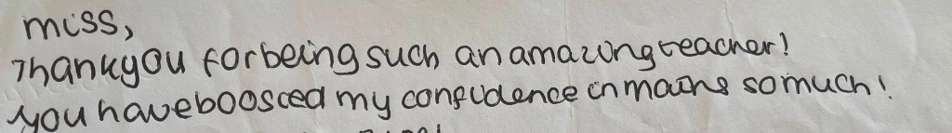 miss,
Thankyou for being such an amazing teacher!
you have boosted my confidence in maths so much!